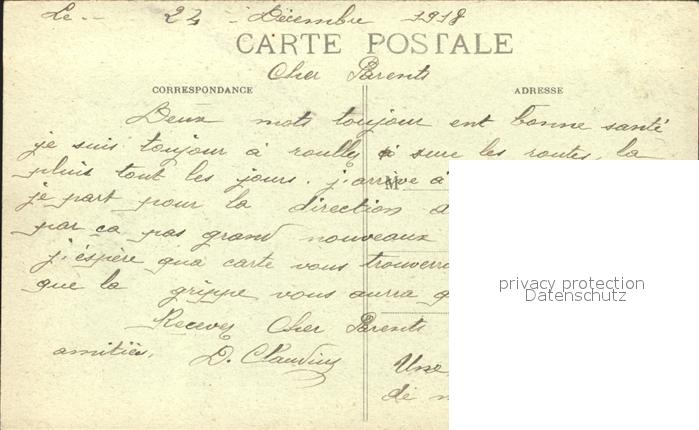 Le - 22 - Décembre 1918
CARTE POSTALE
Cher Parents
CORRESPONDANCE ADRESSE
Deux mots toujour ent bonne santé
je suis toujour à roulley sure les routes, la
pluis tout les jours. j'arrive à
M
je part pour la direction d
par ça pas grand nouveaux
j'éspère qua carte vous trouverra
que la grippe vous aurra
Recevez Cher Parents
amitiés. D. Claudius
Une
de
privacy protection
Datenschutz